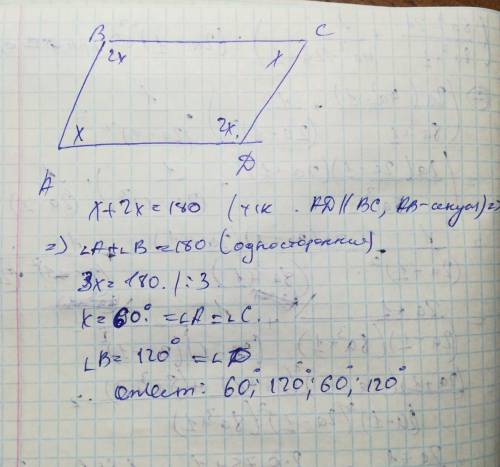 B C
2x x
x 2x
A D
x+2x=180 (так как AD||BC, AB-секущая)=>
=> ∠A+∠B=180 (односторонние)
3x=180. /:3
x=60° =∠A=∠C.
∠B=120° =∠D
Ответ: 60°; 120°; 60°; 120°